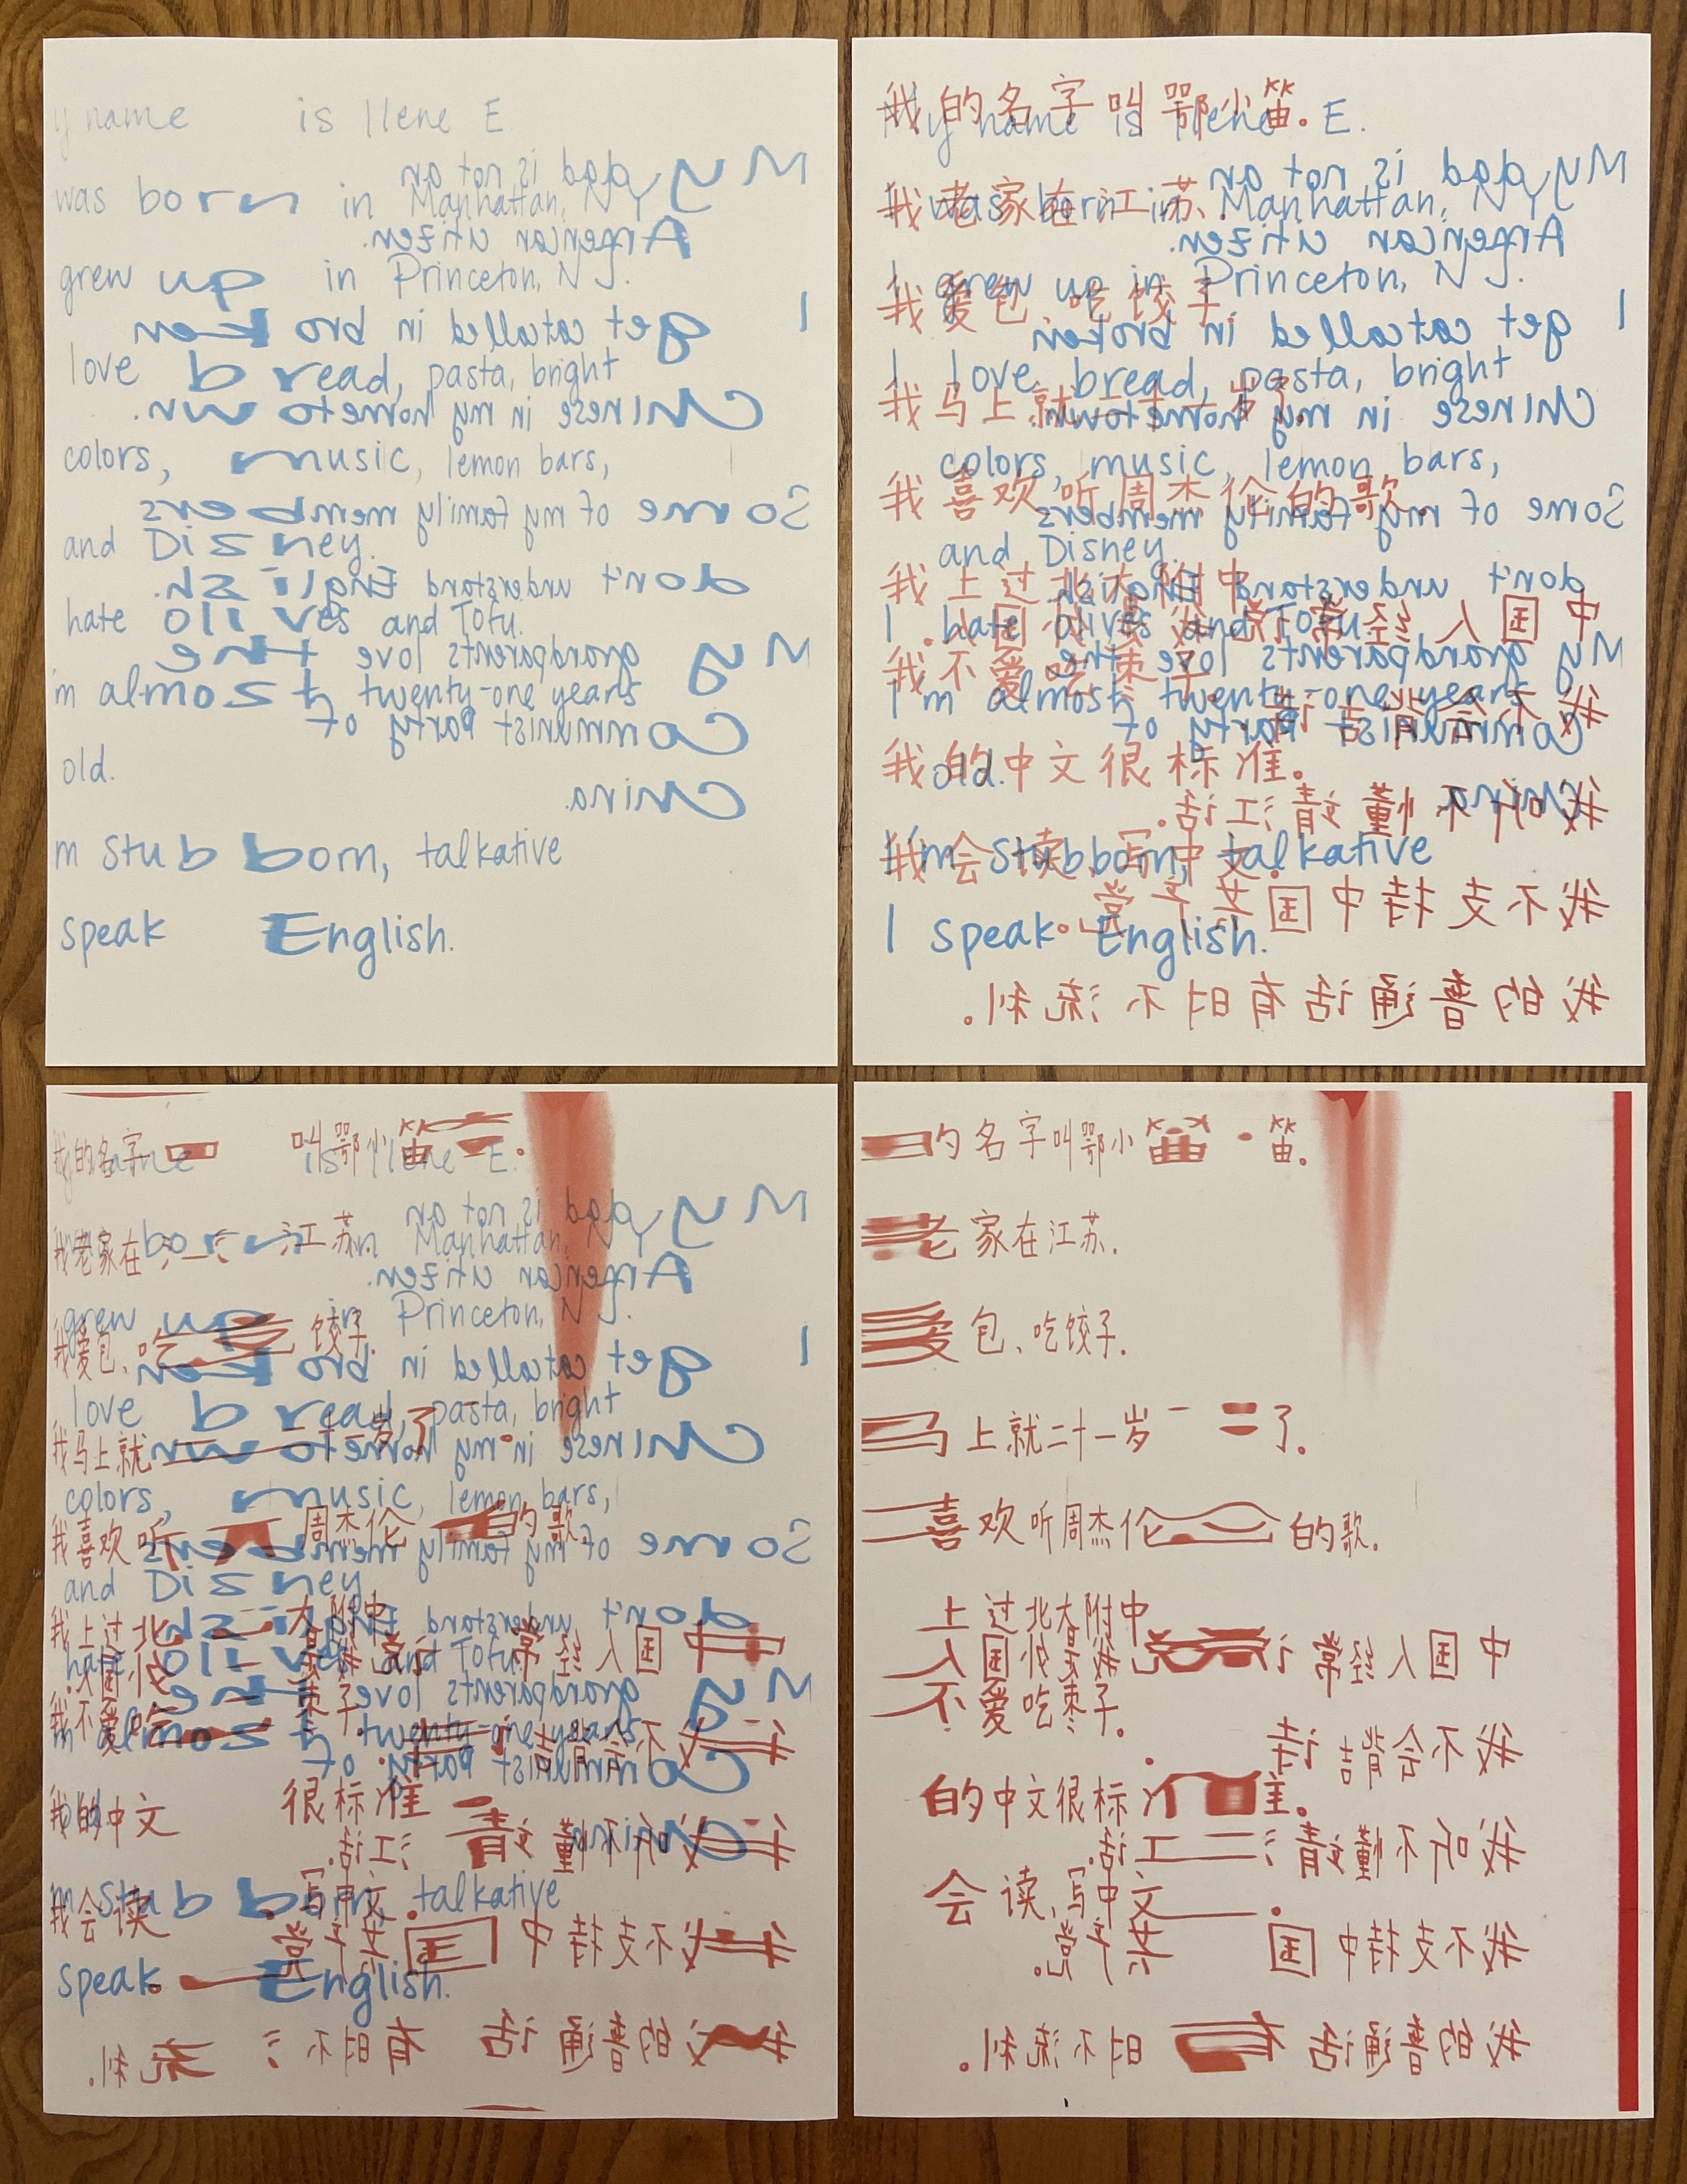 y name is Ilene E.
My dad is not an
was born in Manhattan, NY
American citizen.
grew up in Princeton, NJ.
I get catcalled in broken
love bread, pasta, bright
Chinese in my hometown.
colors, music, lemon bars,
Some of my family members
and Disney.
don't understand English.
hate olives and Tofu.
My grandparents love the
m almost twenty-one years
Communist Party of
old.
China.
m stubborn, talkative
speak English.
我的名字叫鄂小笛。
My name is Ilene E.
My dad is not an
我老家在江苏.
I was born in Manhattan, NY
American citizen.
I grew up in Princeton, NJ.
我爱包、吃饺子.
I get catcalled in broken
I love bread, pasta, bright
我马上就二十一岁了.
Chinese in my hometown.
colors, music, lemon bars,
我喜欢听周杰伦的歌.
Some of my family members
and Disney.
我上过北大附中
don't understand English.
中国人经常
I hate olives and Tofu.
My grandparents love the
我不爱吃枣子.
I'm almost twenty-one years
我不会背古诗.
Communist Party of
我的中文很标准。
old.
China.
我听不懂靖江话。
I'm stubborn, talkative
我会读、写中文.
我不支持中国共产党。
I speak English.
我的普通话有时不流利。
我的名字叫鄂小笛.
name is Ilene E.
My dad is not an
我老家在江苏.
born in Manhattan, NY
American citizen.
grew up in Princeton, NJ.
我爱包、吃饺子.
I get catcalled in broken
love bread, pasta, bright
我马上就一岁了.
Chinese in my hometown.
colors, music, lemon bars,
我喜欢听周杰伦的歌
Some of my family members
and Disney
我上过北大附中
don't understand English.
中国人经常
hate olives and Tofu.
My grandparents love the
我不爱吃枣子.
m almost twenty-one years
我不会背古诗.
Communist Party of
我的中文很标准
我听不懂靖江话.
China
m stubborn, talkative
我会读、写中文.
我不支持中国共产党.
speak English.
我的普通话有时不流利.
的名字叫鄂小笛.
老家在江苏.
爱包、吃饺子.
马上就二十一岁了.
喜欢听周杰伦的歌.
上过北大附中
中国人经常
不爱吃枣子.
我不会背古诗.
的中文很标准.
我听不懂靖江话.
会读、写中文.
我不支持中国共产党。
我的普通话有时不流利。